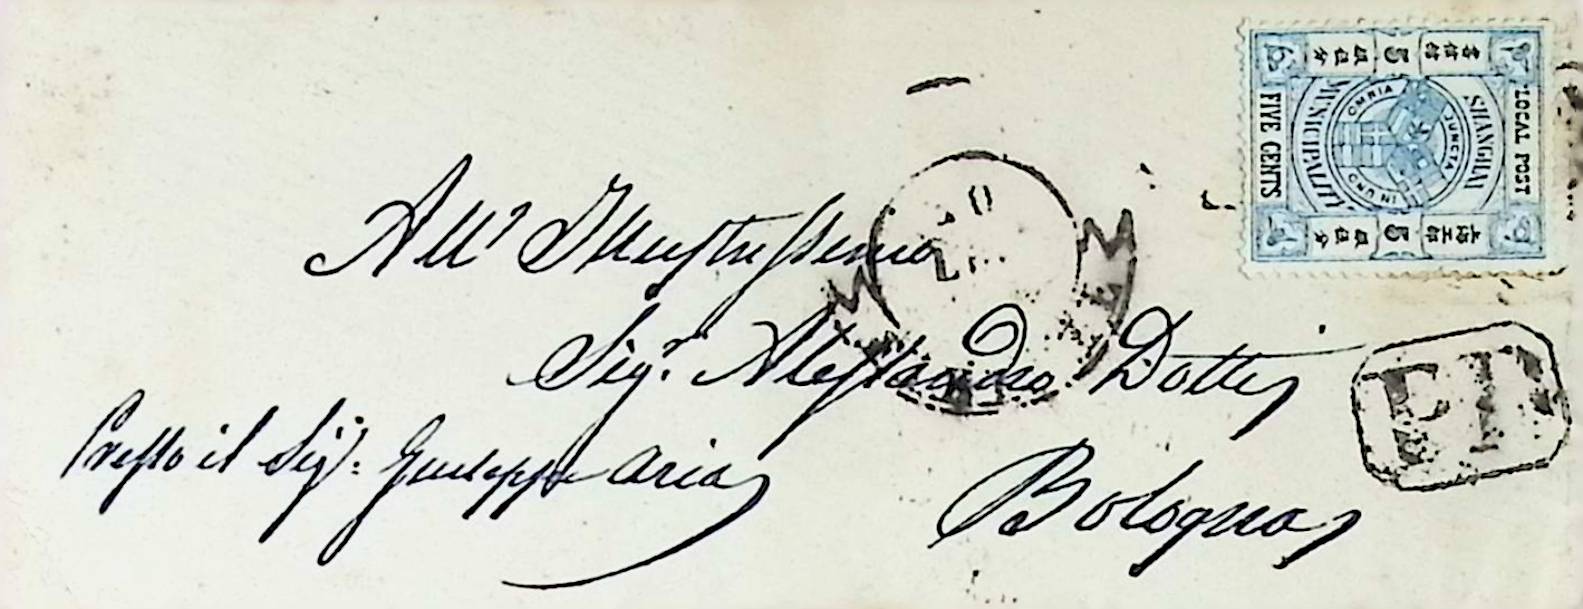 All' Illustrissimo
Sigr. Alessandro Dotti
Presso il Sigr. Giuseppe Aria
Bologna
LOCAL POST
SHANGHAI
MUNICIPALITY
OMNIA JUNCTA IN UNO
FIVE CENTS
5
5
PD